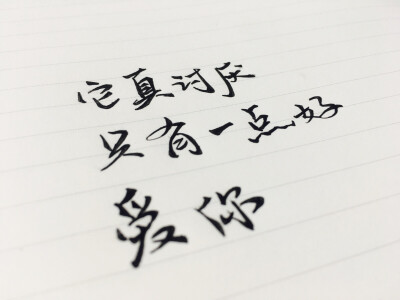 它真讨厌
只有一点好
爱你